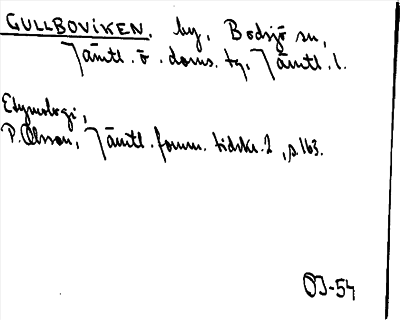 GULLBOVIKEN, by, Bodsjö sn,
Jämtl. ö. doms. tg, Jämtl. l.
Etymologi,
P. Olsson, Jämtl. fornm. tidskr. 2, s. 163.
OJ-54